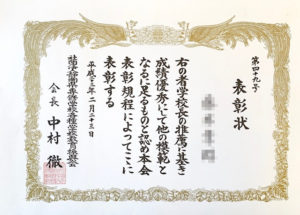 第四十九号
表彰状
右の者学校長の推薦に基き
成績優秀にして他の模範と
なるに足るものと認め本会
表彰規程によってここに
表彰する
平成二十八年二月二十三日
会長 中村 徹